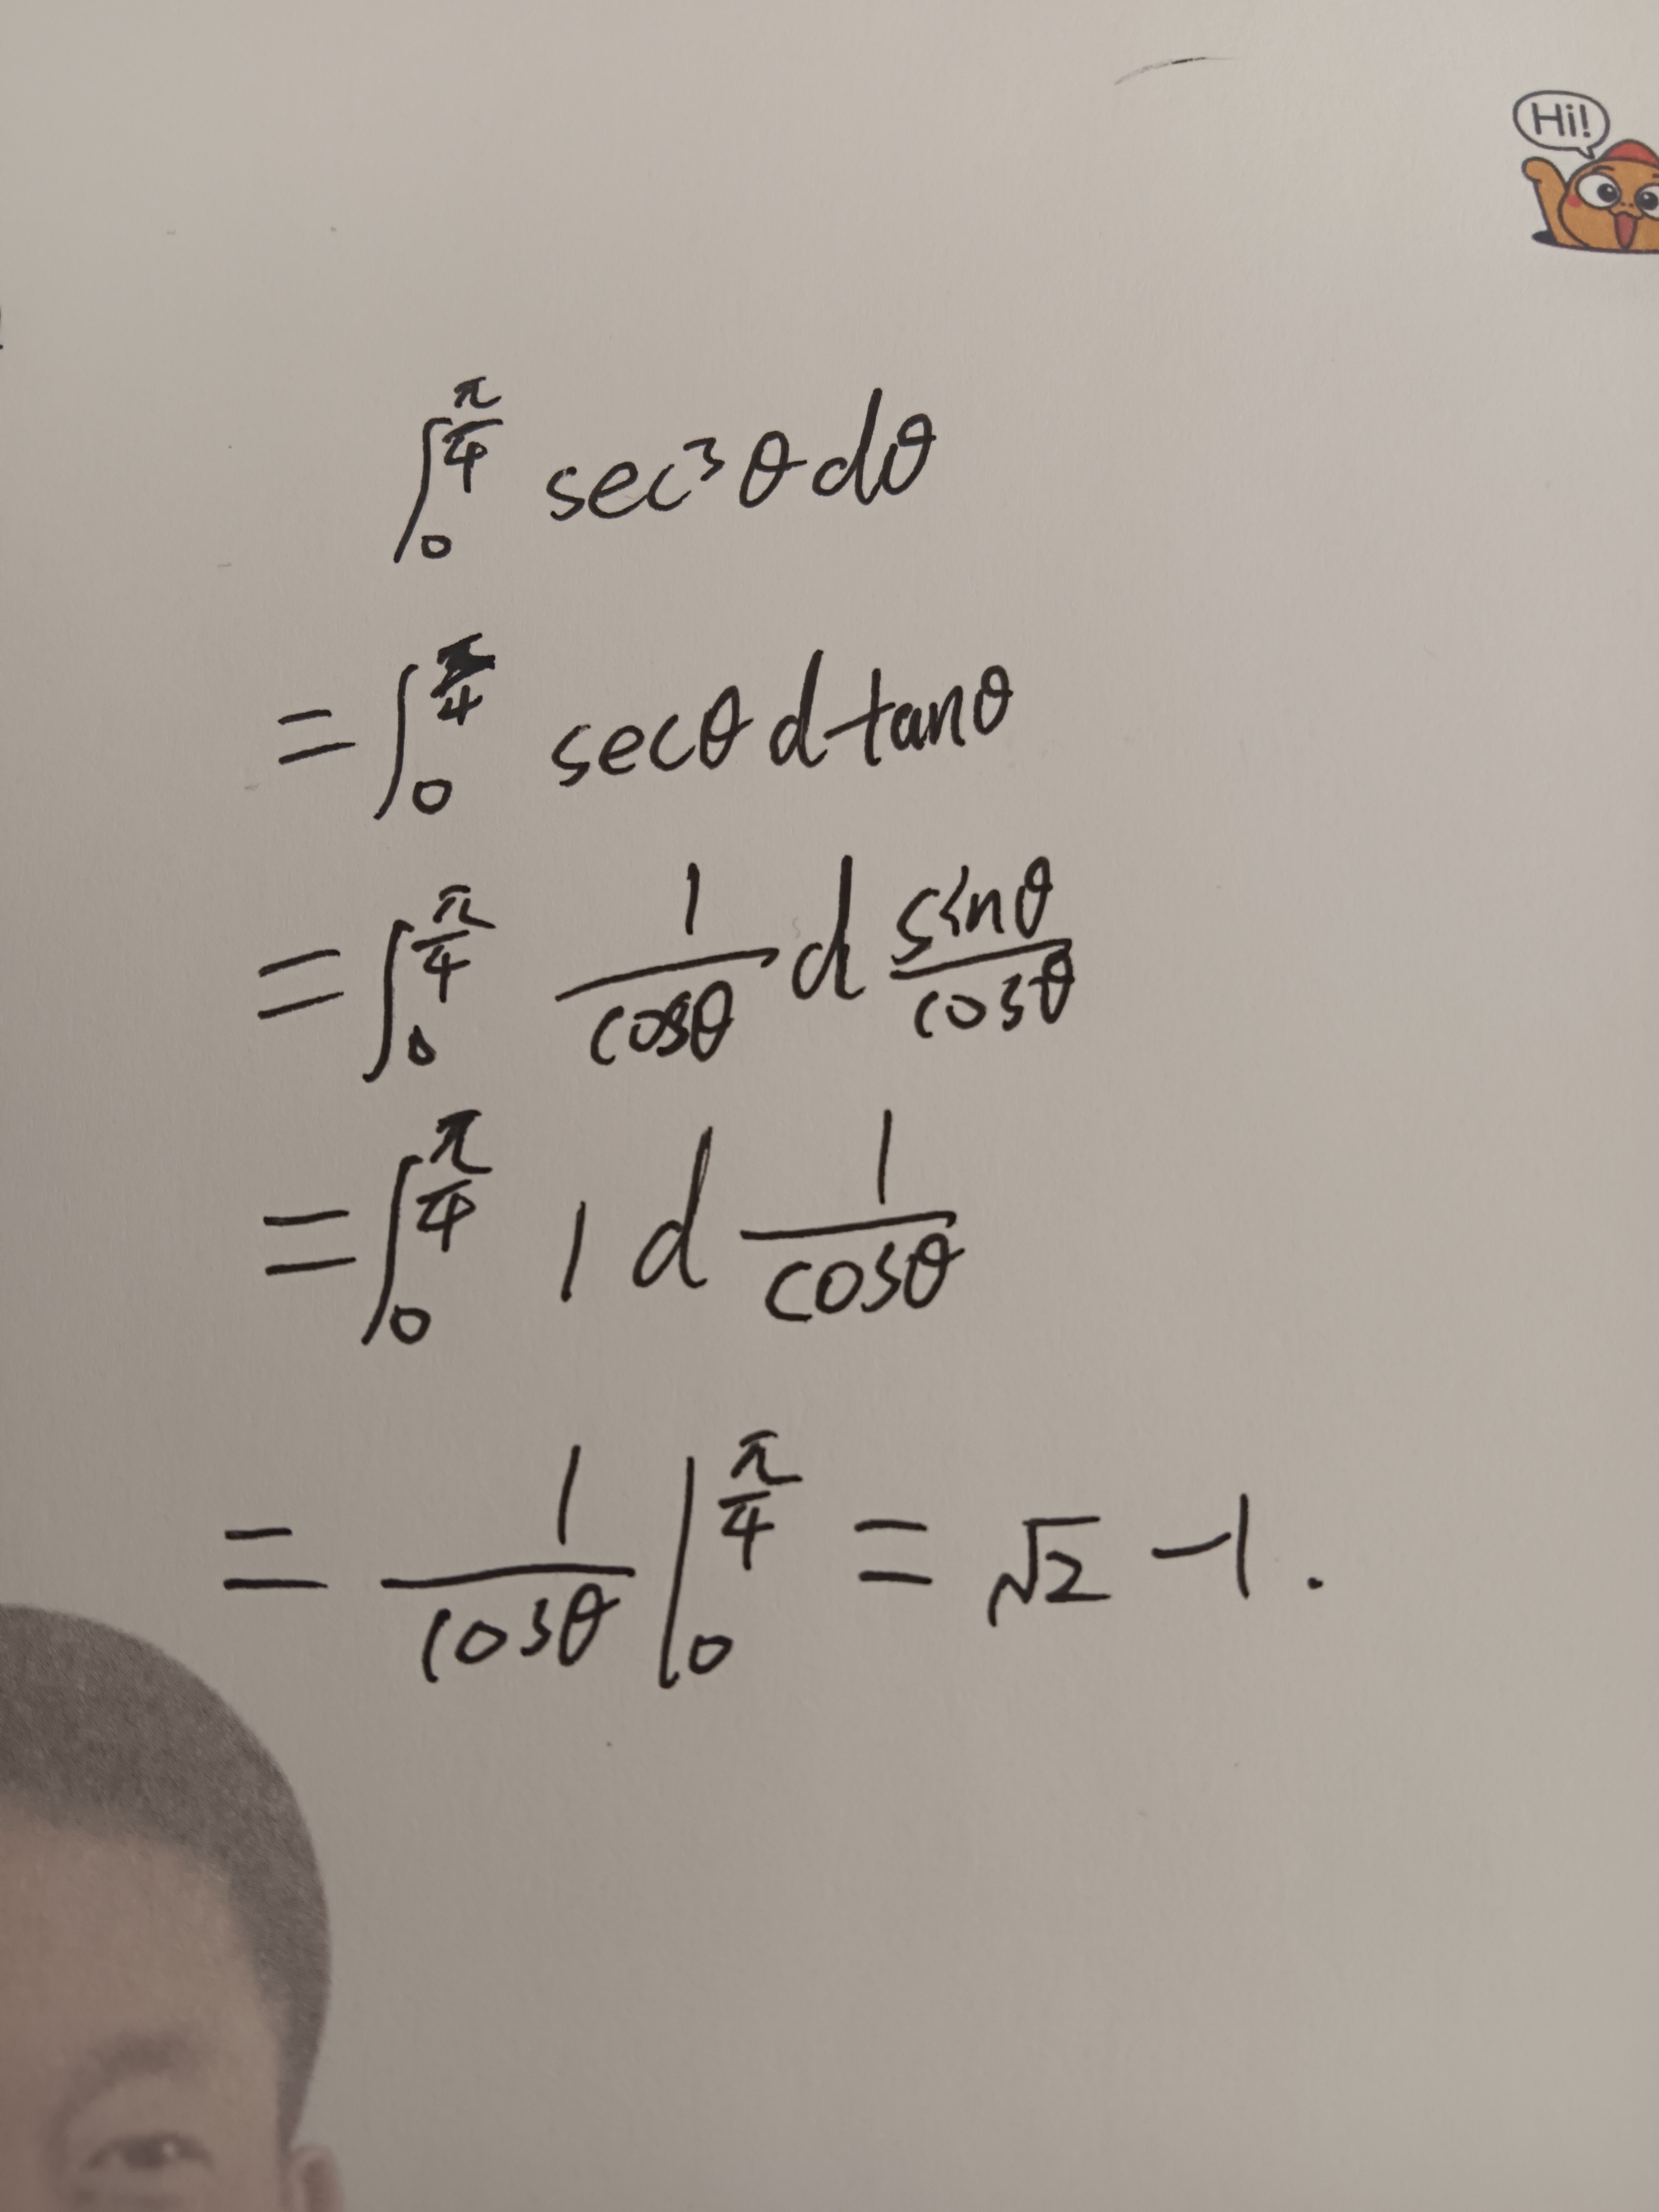 Hi!
∫₀^{π/4} sec³θ dθ
= ∫₀^{π/4} secθ d tanθ
= ∫₀^{π/4} 1/cosθ d sinθ/cosθ
= ∫₀^{π/4} 1 d 1/cosθ
= 1/cosθ |₀^{π/4} = √2 - 1.